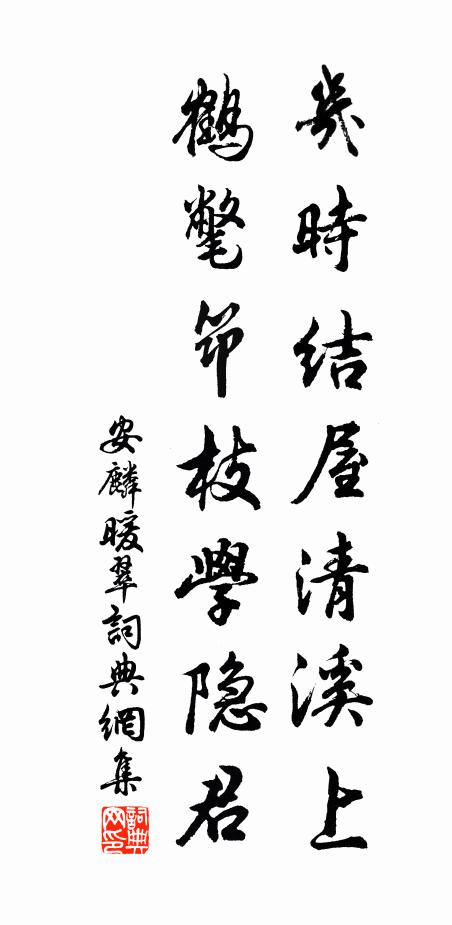 幾時結屋清溪上
鶴氅笻枝學隐君
安麟暖翠詞典網集
詞典网印